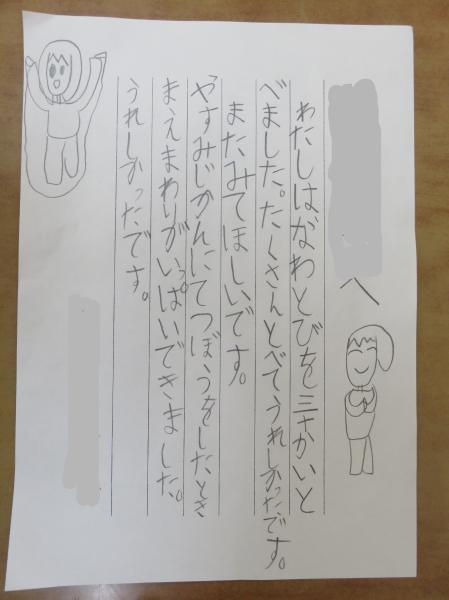 へ
わたしはなわとびを三十かいと
べました。たくさんとべてうれしかったです。
またみてほしいです。
やすみじかんにてつぼうをしたとき
まえまわりがいっぱいできました。
うれしかったです。